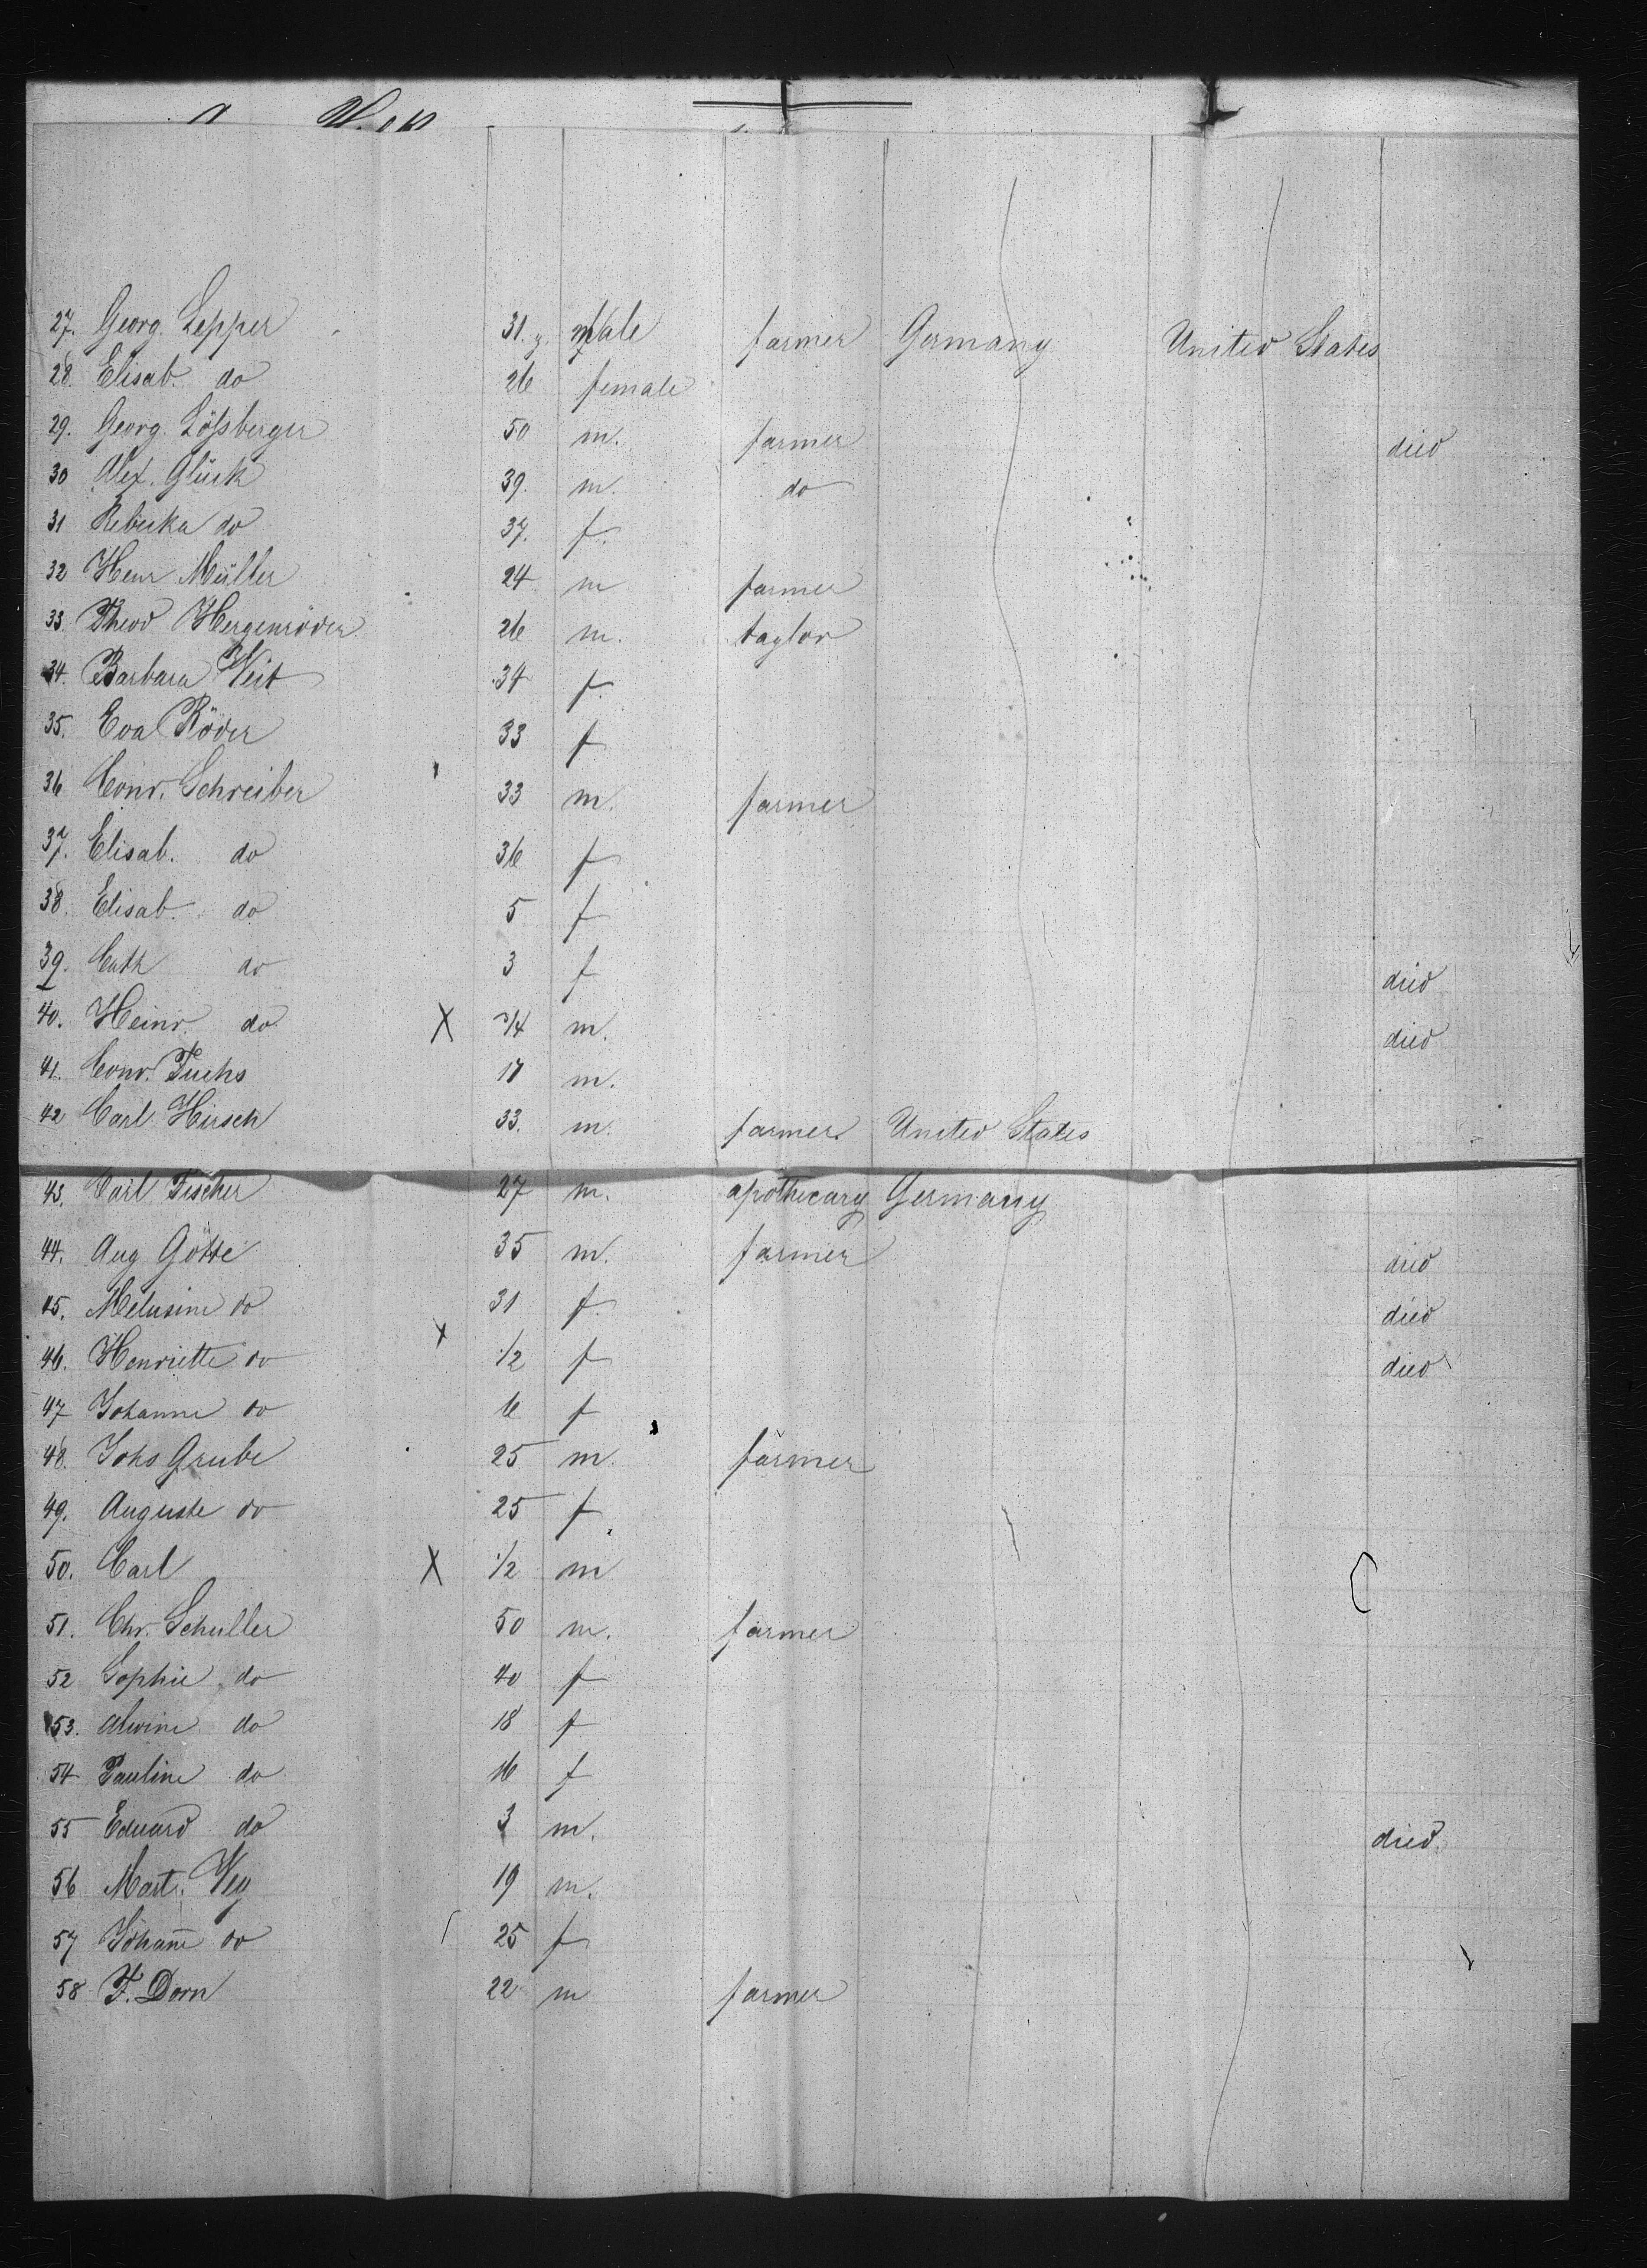 27. Georg. Lepper 31. y. male farmer Germany United States
28. Elisab. do 26 female
29. Georg. Lößberger 50 m. farmer died
30 Alex. Glück 39. m. do
31 Rebecka do 37. f.
32 Henr Müller 24 m farmer
33. Theod Hergenröder 26 m. taylor
34. Barbara Veit 34 f.
35. Eva Röder 33 f
36 Conr. Schreiber 33 m. farmer
37. Elisab. do 36 f
38. Elisab. do 5 f
39. Cath do 3 f died
40. Heinr. do X 3/4 m. died
41. Conr. Fuchs 17 m.
42 Carl Hirsch 33. m. farmer. United States
43. Carl Fischer 27 m. apothecary Germany
44. Aug Götte 35 m. farmer died
45. Melusine do 31 f. died
46. Henriette do X 1/2 f died
47 Johanne do 6 f
48. Johs Grube 25 m. farmer
49. Auguste do 25 f
50. Carl X 1/2 m
51. Chr. Schuller 50 m. farmer
52 Sophie do 40 f
53. Alwine do 18 f
54 Pauline do 16 f
55 Eduard do 3 m. died.
56 Mart. 19 m.
57 Joham̄e do 25 f
58 F. Dorn 22 m farmer